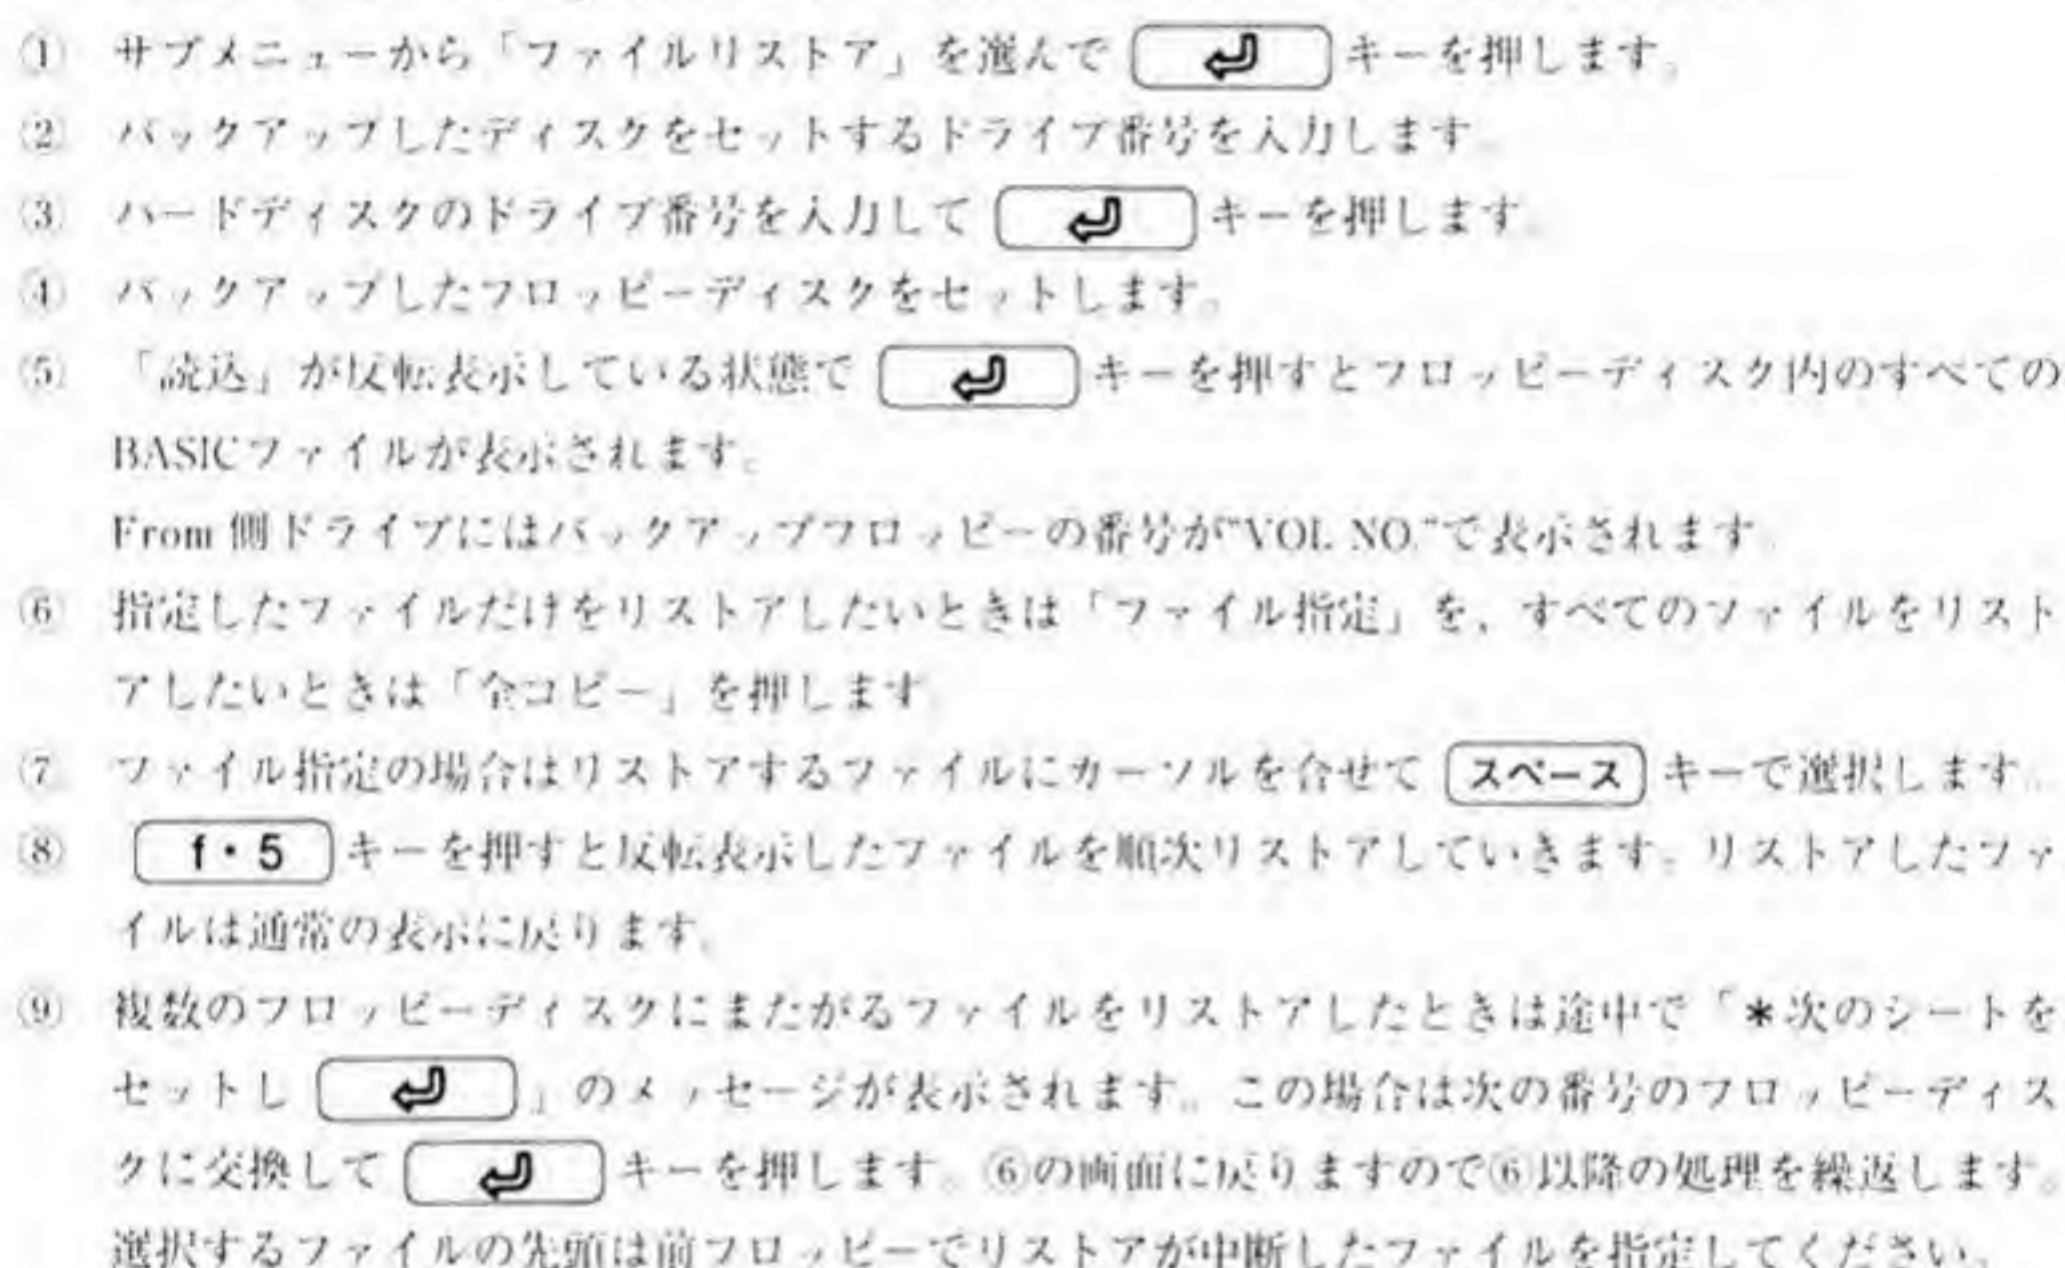 ① サブメニューから「ファイルリストア」を選んで ⏎ キーを押します。
② バックアップしたディスクをセットするドライブ番号を入力します。
③ ハードディスクのドライブ番号を入力して ⏎ キーを押します。
④ バックアップしたフロッピーディスクをセットします。
⑤ 「読込」が反転表示している状態で ⏎ キーを押すとフロッピーディスク内のすべての
BASICファイルが表示されます。
From 側ドライブにはバックアップフロッピーの番号が"VOL NO."で表示されます。
⑥ 指定したファイルだけをリストアしたいときは「ファイル指定」を、すべてのファイルをリスト
アしたいときは「全コピー」を押します。
⑦ ファイル指定の場合はリストアするファイルにカーソルを合せて スペース キーで選択します。
⑧ f・5 キーを押すと反転表示したファイルを順次リストアしていきます。リストアしたファ
イルは通常の表示に戻ります。
⑨ 複数のフロッピーディスクにまたがるファイルをリストアしたときは途中で「*次のシートを
セットし ⏎ 」のメッセージが表示されます。この場合は次の番号のフロッピーディス
クに交換して ⏎ キーを押します。⑥の画面に戻りますので⑥以降の処理を繰返します。
選択するファイルの先頭は前フロッピーでリストアが中断したファイルを指定してください。